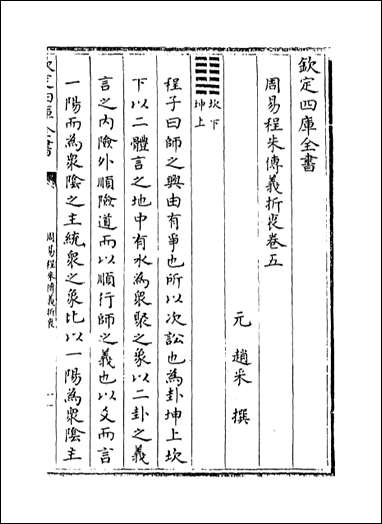 欽定四庫全書
周易程朱傳義折衷卷五
元 趙采 撰
坎下
坤上
程子曰師之興由有爭也所以次訟也為卦坤上坎
下以二體言之地中有水為衆聚之象以二卦之義
言之內險外順險道而以順行師之義也以爻而言
一陽而為衆陰之主統衆之象比以一陽為衆陰主
欽定四庫全書
周易程朱傳義折衷
一